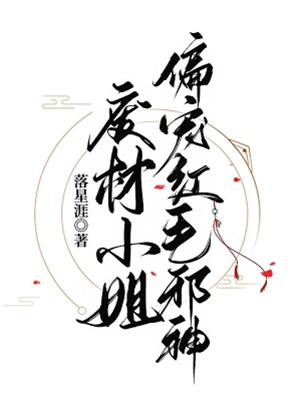 废材小姐
偏宠红毛邪神
落星涯◎著